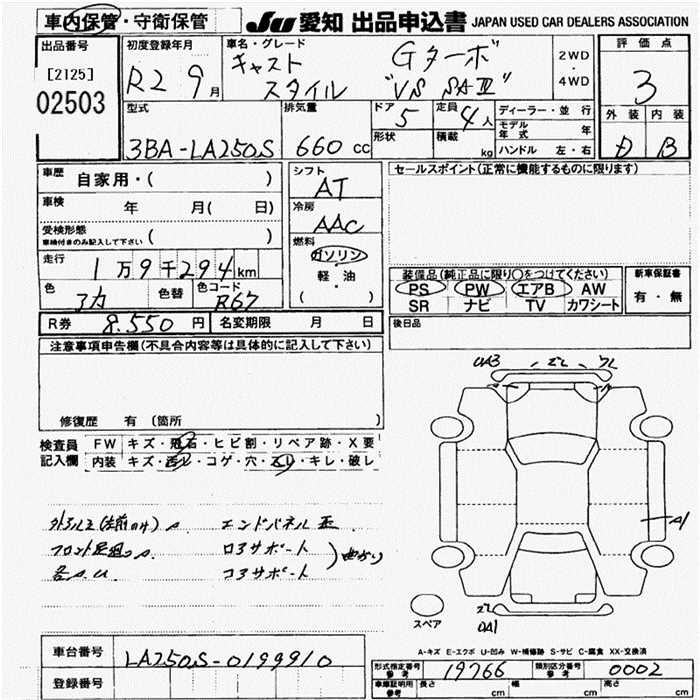 車内保管・守衛保管
JU 愛知 出品申込書 JAPAN USED CAR DEALERS ASSOCIATION
出品番号
[2125]
02503
初度登録年月
R2 9月
車名・グレード
キャスト Gターボ
スタイル "VS SAⅢ"
2WD
・
4WD
評価点
3
外装 内装
D B
型式
3BA-LA250S
排気量
660 cc
ドア 5
定員 4人
形状
積載 kg
ディーラー・並行
モデル年式 年
ハンドル 左・右
車歴 自家用・( )
車検 年 月( 日)
受検形態
車検付きのみ記入して下さい ( )
走行 1万9千294km
色 アカ 色替 色コード R67
シフト
AT
冷房
AAC
燃料
ガソリン
・
軽・油
( )
セールスポイント(正常に機能するものに限ります)
装備品(純正品に限り○をつけてください)
PS PW エアB AW
SR ナビ TV カワシート
新車保証書
有・無
R券 8.550円 名変期限 月 日
後日品
注意事項申告欄(不具合内容等は具体的に記入して下さい)
修復歴 有(箇所 )
検査員 FW キズ・飛石・ヒビ割・リペア跡・X要
記入欄 内装 キズ・汚レ・コゲ・穴・スレ・キレ・破レ
エンドパネル
ロアサポート
コアサポート
曲がり
A1
スペア
車台番号 LA250S-0199910
登録番号
A-キズ E-エクボ U-凹み W-補修跡 S-サビ C-腐食 XX-交換済
形式指定番号 参考 19766 類別区分番号 参考 0002
車庫証明用 参考 長さ cm 幅 cm 高さ cm